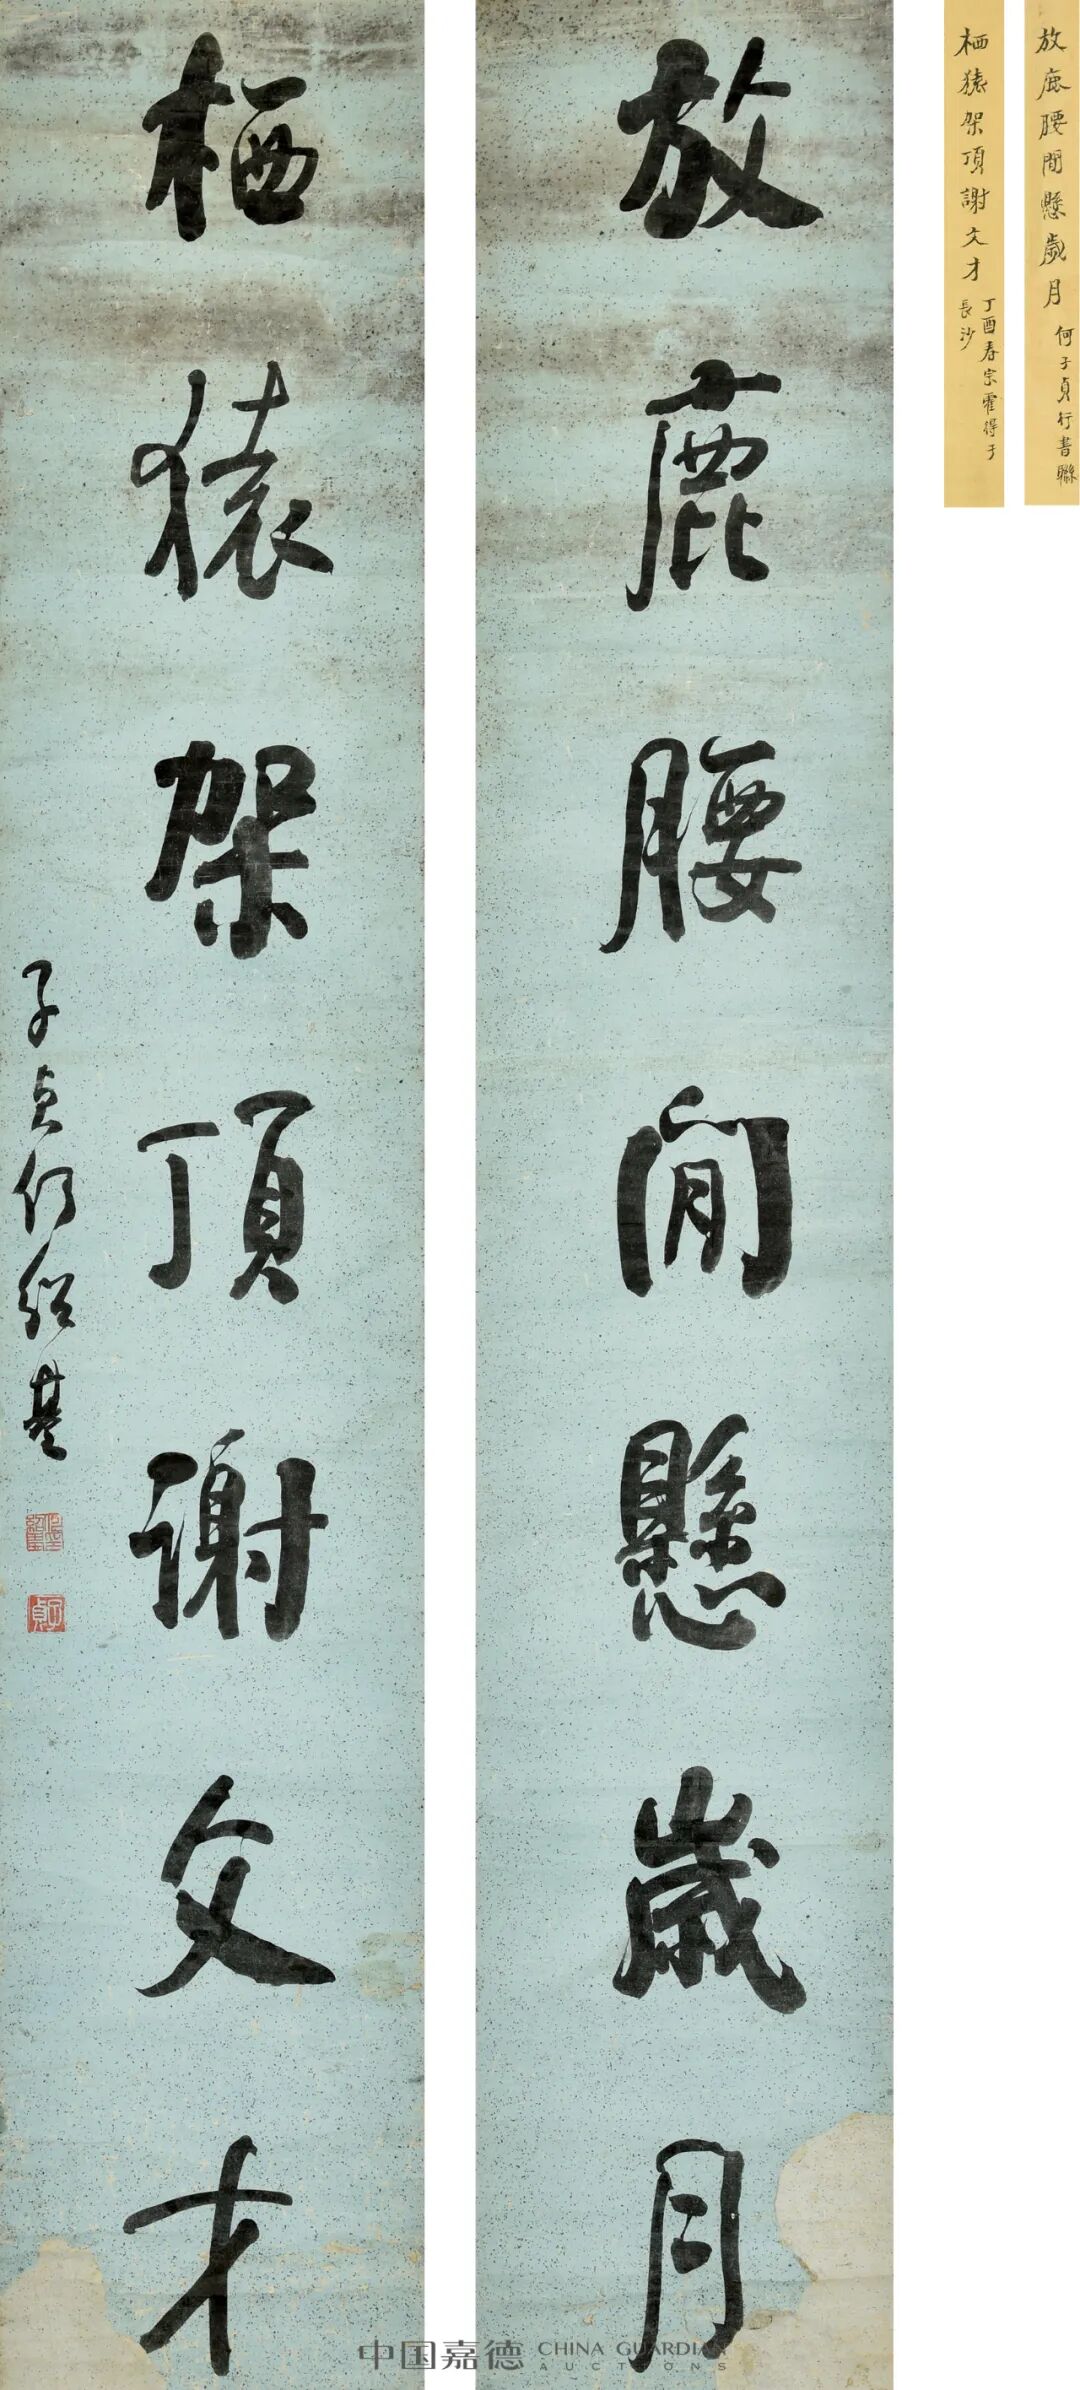 放鹿腰間懸歲月
栖猿架頂謝文才
子貞何紹基
放鹿腰間懸歲月 何子貞行書聯
栖猿架頂謝文才 丁酉春宗霍得于
長沙
中国嘉德 CHINA GUARDIAN
AUCTIONS